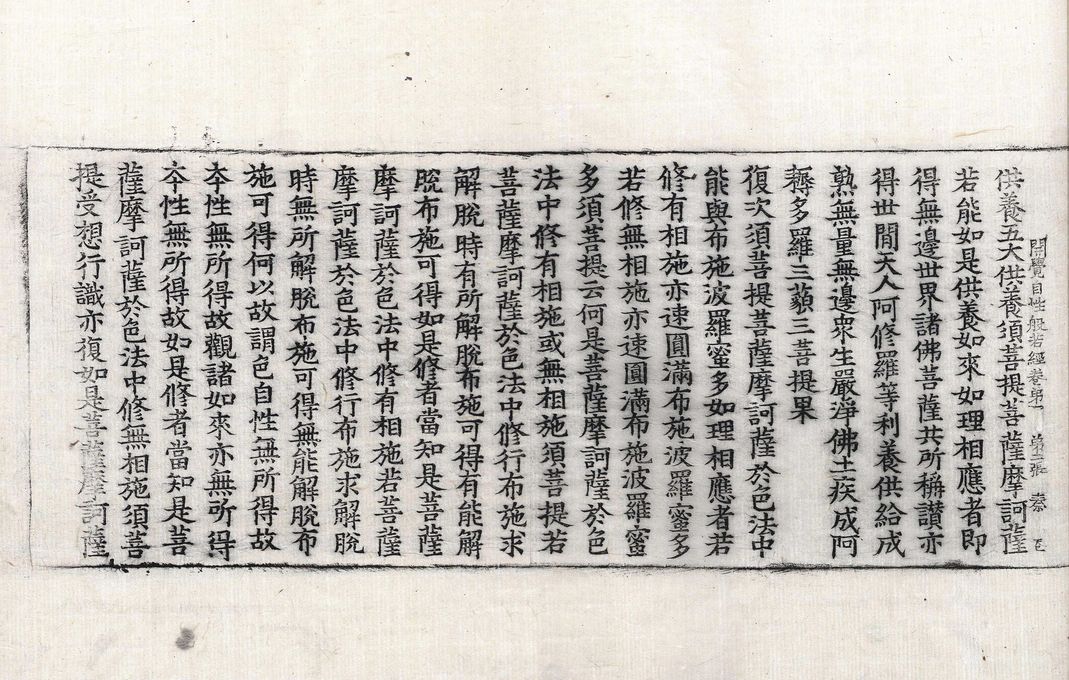 供養五大供養須菩提菩薩摩訶薩
開覺自性般若經卷第一 第 張 秦
若能如是供養如來如理相應者即
得無邊世界諸佛菩薩共所稱讃亦
得世閒天人阿修羅等利養供給成
熟無量無邊衆生嚴淨佛土疾成阿
耨多羅三藐三菩提果
復次須菩提菩薩摩訶薩於色法中
能與布施波羅蜜多如理相應者若
修有相施亦速圓滿布施波羅蜜多
若修無相施亦速圓滿布施波羅蜜
多須菩提云何是菩薩摩訶薩於色
法中修有相施或無相施須菩提若
菩薩摩訶薩於色法中修行布施求
解脫時有所解脫布施可得有能解
脫布施可得如是修者當知是菩薩
摩訶薩於色法中修有相施若菩薩
摩訶薩於色法中修行布施求解脫
時無所解脫布施可得無能解脫布
施可得何以故謂色自性無所得故
夲性無所得故觀諸如來亦無所得
夲性無所得故如是修者當知是菩
薩摩訶薩於色法中修無相施須菩
提受想行識亦復如是菩薩摩訶薩